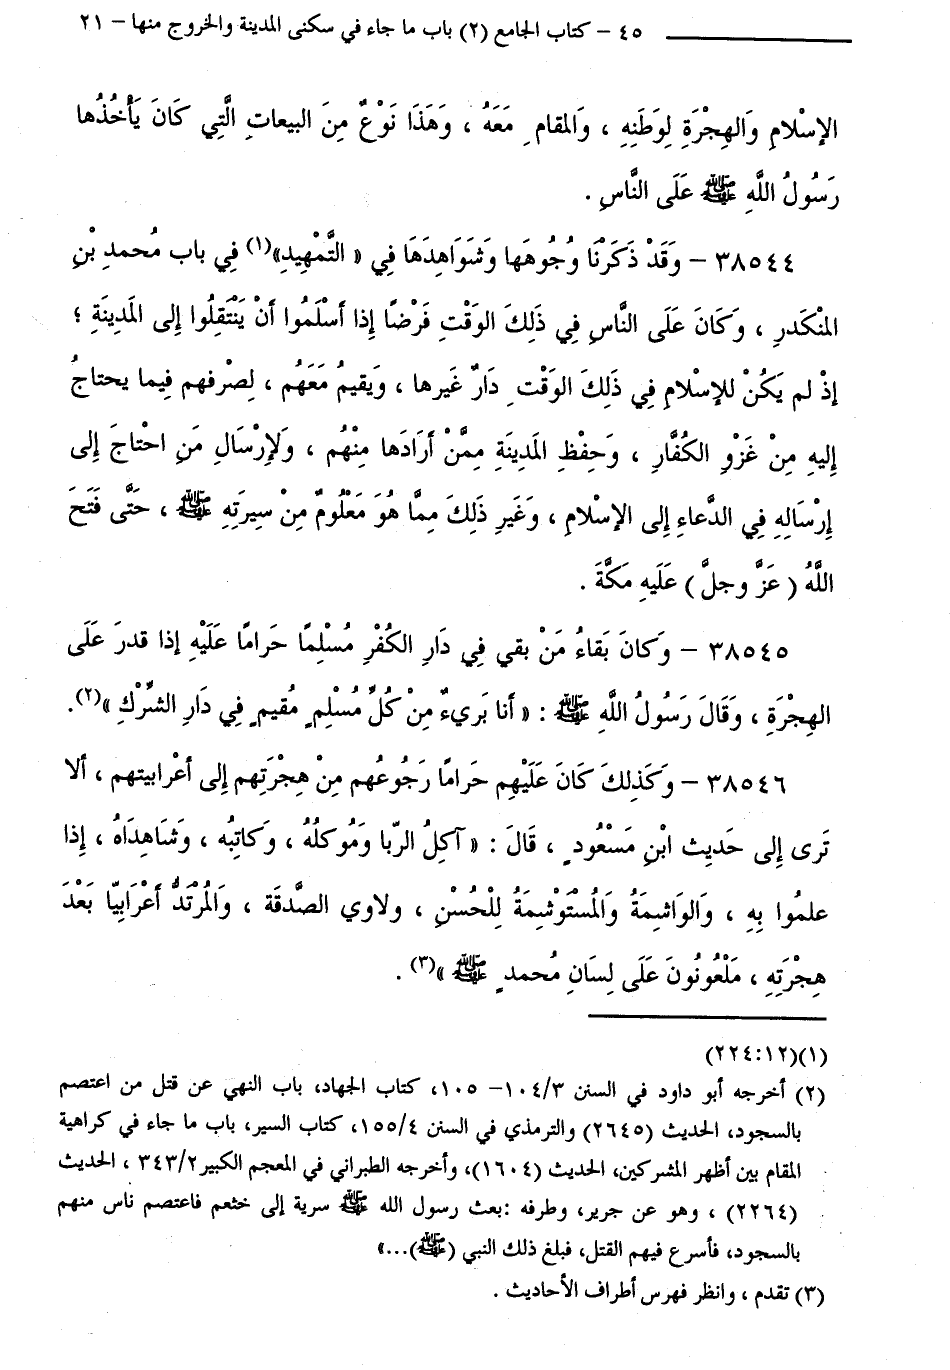 ٤٥ – كتاب الجامع (٢) باب ما جاء في سكنى المدينة والخروج منها – ٢١
الإسْلامِ وَالهِجْرَةِ لِوَطَنِهِ ، وَالمقام ِ مَعَهُ ، وَهَذَا نَوْعٌ مِنَ البيعاتِ الَّتِي كَانَ يَأْخُذُها
رَسُولُ اللَّهِ ﷺ عَلَى النَّاسِ .
٣٨٥٤٤ – وَقَدْ ذَكَرْنَا وُجُوهَها وَشَوَاهِدَهَا فِي « التَّمْهِيدِ»(١) فِي باب مُحمدِ بْنِ
المنْكَدرِ ، وَكَانَ عَلَى النَّاسِ فِي ذَلِكَ الوَقْتِ فَرْضًا إِذا أسْلَمُوا أنْ يَنْتَقِلُوا إِلى المَدِينَةِ ؛
إذْ لم يَكُنْ للإسْلامِ فِي ذَلِكَ الوَقْت ِ دَارٌ غَيرها ، وَيقيمُ مَعَهُم ، لِصرْفهم فِيما يحتاجُ
إِليهِ مِنْ غَزْوِ الكُفَّارِ ، وَحِفْظِ المَدِينَةِ مِمَّنْ أرَادَها مِنْهُم ، وَلإِرْسَالِ مَنِ احْتاجَ إِلى
إِرْسَالِهِ فِي الدعَاءِ إِلى الإسْلامِ ، وَغَيرِ ذَلِكَ مِمَّا هُوَ مَعْلُومٌ مِنْ سِيرَتِهِ ﷺ ، حَتَّى فَتَحَ
اللَّهُ ( عَزَّ وجلَّ ) عَلَيهِ مَكَّةَ .
٣٨٥٤٥ – وَكانَ بَقاءُ مَنْ بقي فِي دَارِ الكُفْرِ مُسْلِمًا حَرامًا عَلَيْهِ إذا قدرَ عَلَى
الهِجْرَةِ ، وَقَالَ رَسُولُ اللَّهِ ﷺ : « أنا بَريءٌ مِنْ كُلِّ مُسْلِم ٍ مُقيم ٍ فِي دَارِ الشِّرْكِ »(٢).
٣٨٥٤٦ – وَكَذلِكَ كَانَ عَلَيْهِم حَرامًا رَجُوعُهم مِنْ هِجْرَتِهم إِلى أعْرابيتهم ، ألا
تَرى إِلى حَديِث ابْنِ مَسْعُود ٍ ، قَالَ : « آكِلُ الرّبا وَمُوكلُهُ ، وَكاتِبُه ، وَشاهِدَاهُ ، إذا
علمُوا بِهِ ، وَالوَاشِمَةُ وَالمُسْتَوْشِمَةُ لِلْحُسْنِ ، ولاوي الصَّدقَة ، وَالمُرْتَدُّ أعْرَابِيّا بَعْدَ
هِجْرَتِهِ ، مَلْعُونُونَ عَلَى لِسَانِ مُحمد ٍ ﷺ »(٣) .
(١)(٢٢٤:١٢)
(٢) أخرجه أبو داود في السنن ١٠٤/٣– ١٠٥، كتاب الجهاد، باب النهي عن قتل من اعتصم
بالسجود، الحديث (٢٦٤٥) والترمذي في السنن ١٥٥/٤، كتاب السير، باب ما جاء في كراهية
المقام بين أظهر المشركين، الحديث (١٦٠٤)، وأخرجه الطبراني في المعجم الكبير٣٤٣/٢ ، الحديث
(٢٢٦٤) ، وهو عن جرير، وطرفه :بعث رسول الله ﷺ سرية إلى خثعم فاعتصم ناس منهم
بالسجود، فأسرع فيهم القتل، فبلغ ذلك النبي (ﷺ)...»
(٣) تقدم ، وانظر فهرس أطراف الأحاديث .